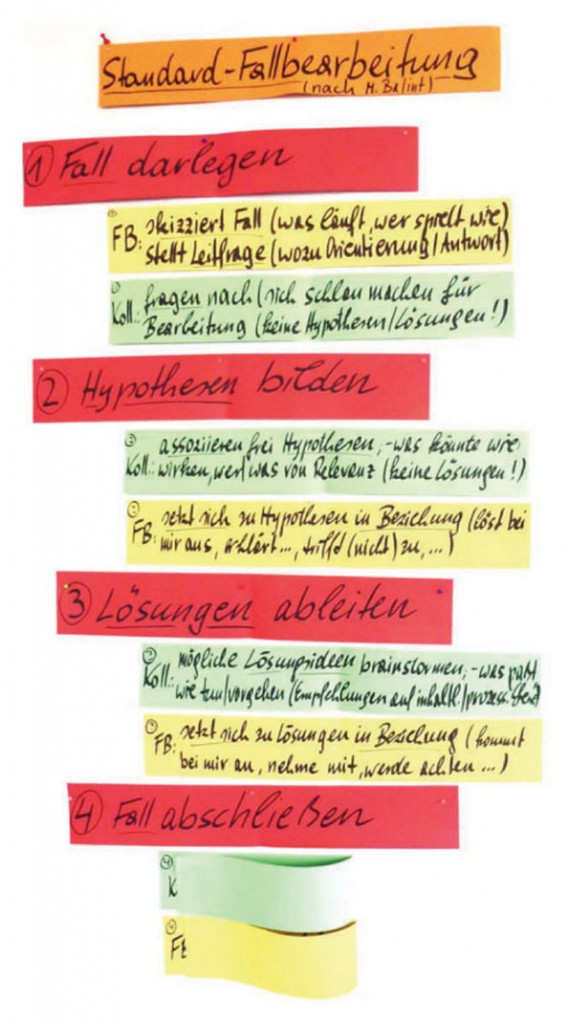 Standard-Fallbearbeitung
(nach M. Balint)
① Fall darlegen
① FB: skizziert Fall (was läuft, wer spielt wie)
stellt Leitfrage (wozu Orientierung/Antwort)
① Koll.: fragen nach (sich schlau machen für
Bearbeitung (keine Hypothesen/Lösungen!)
② Hypothesen bilden
② Koll.: assoziieren frei Hypothesen, - was könnte wie
wirken, wer/was von Relevanz (keine Lösungen!)
② FB: setzt sich zu Hypothesen in Beziehung (löst bei
mir aus, erklärt..., trifft (nicht) zu, ...)
③ Lösungen ableiten
③ Koll.: mögliche Lösungsideen brainstormen, - was paßt
wie tun/vorgehen (Empfehlungen auf inhaltl./prozess.
③ FB: setzt sich zu Lösungen in Beziehung (kommt
bei mir an, nehme mit, werde achten ...)
④ Fall abschließen
④ K
④ FB